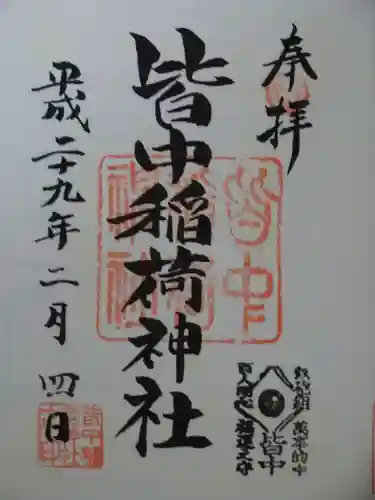 奉拝
皆中稲荷神社
平成二十九年二月四日
皆中稲荷神社
鉄炮組
萬事的中
皆中
百人隊